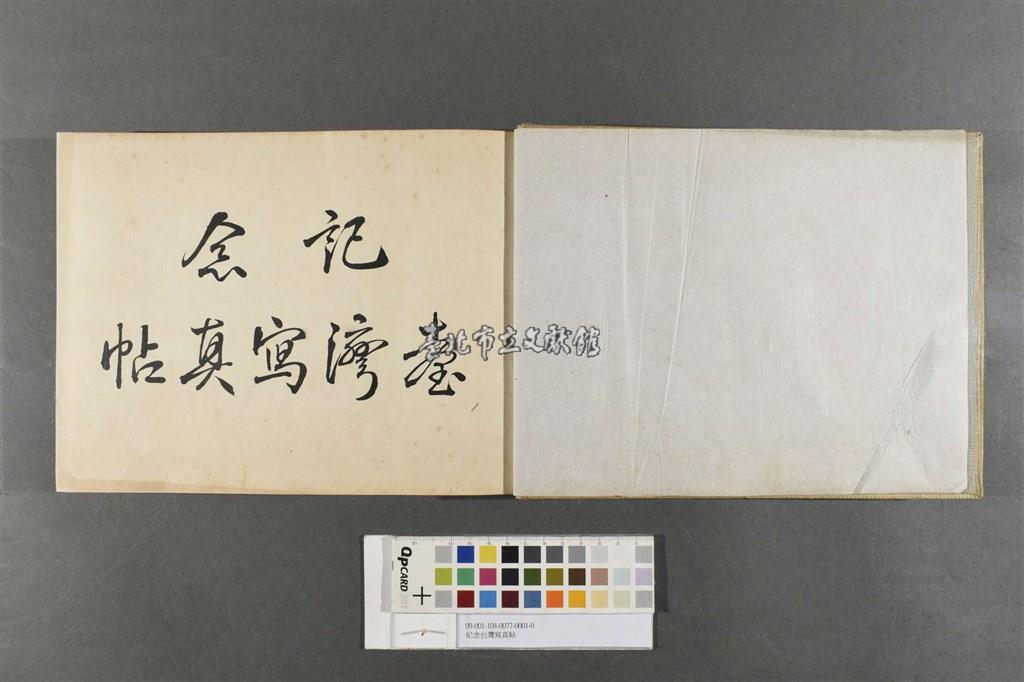 記念
臺灣寫真帖
臺北市立文獻館
QPCARD 201
09-001-108-0077-0001-0
紀念台灣寫真帖